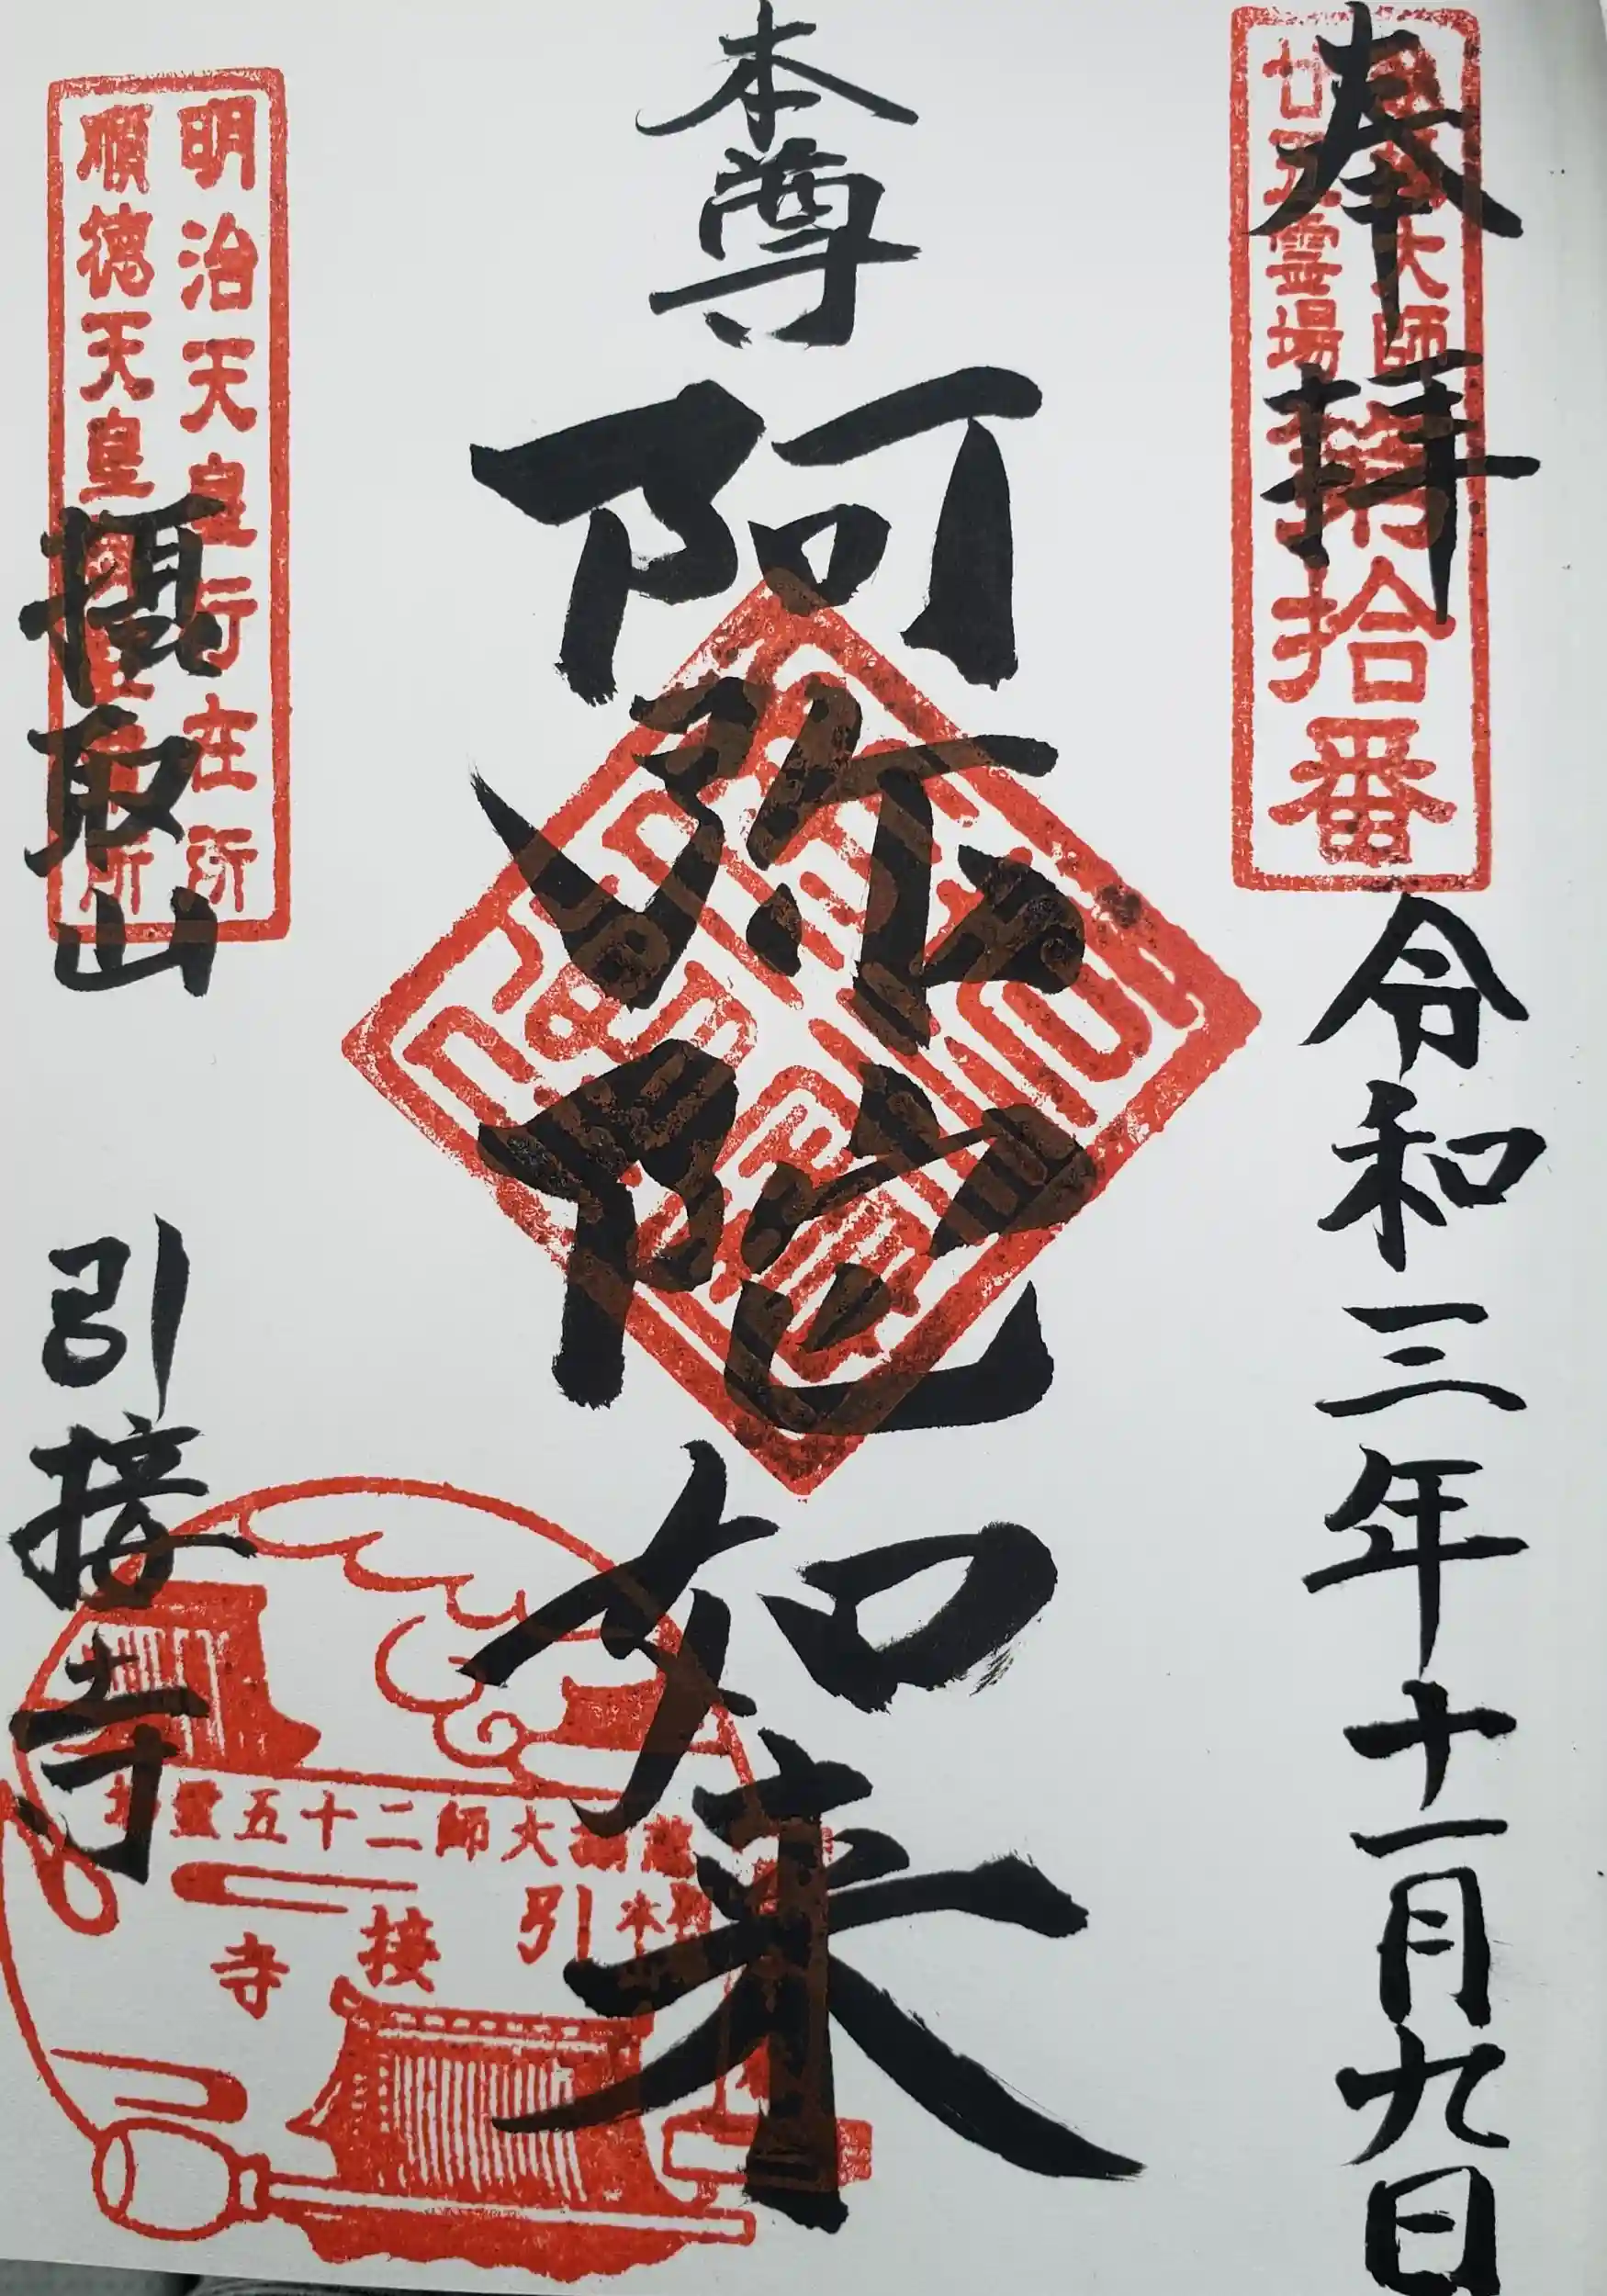 奉拝
令和三年十一月九日
大師
廿五霊場
第拾番
本尊
阿弥陀如来
明治天皇行在所
順徳天皇
摂取山
引接寺
大師二十五霊
引接寺